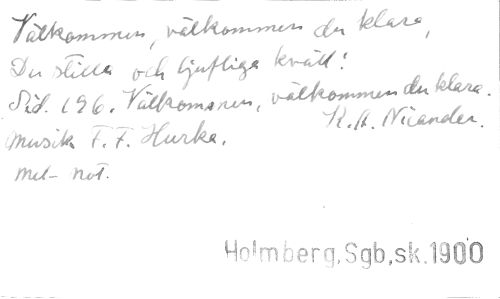 Välkommen, välkommen du klara,
Du stilla och ljufliga kväll!
Sid. 196. Välkommen, välkommen du klara.
K. A. Nicander.
Musik F. F. Hurka.
mel- not.
Holmberg, Sgb, sk. 1900